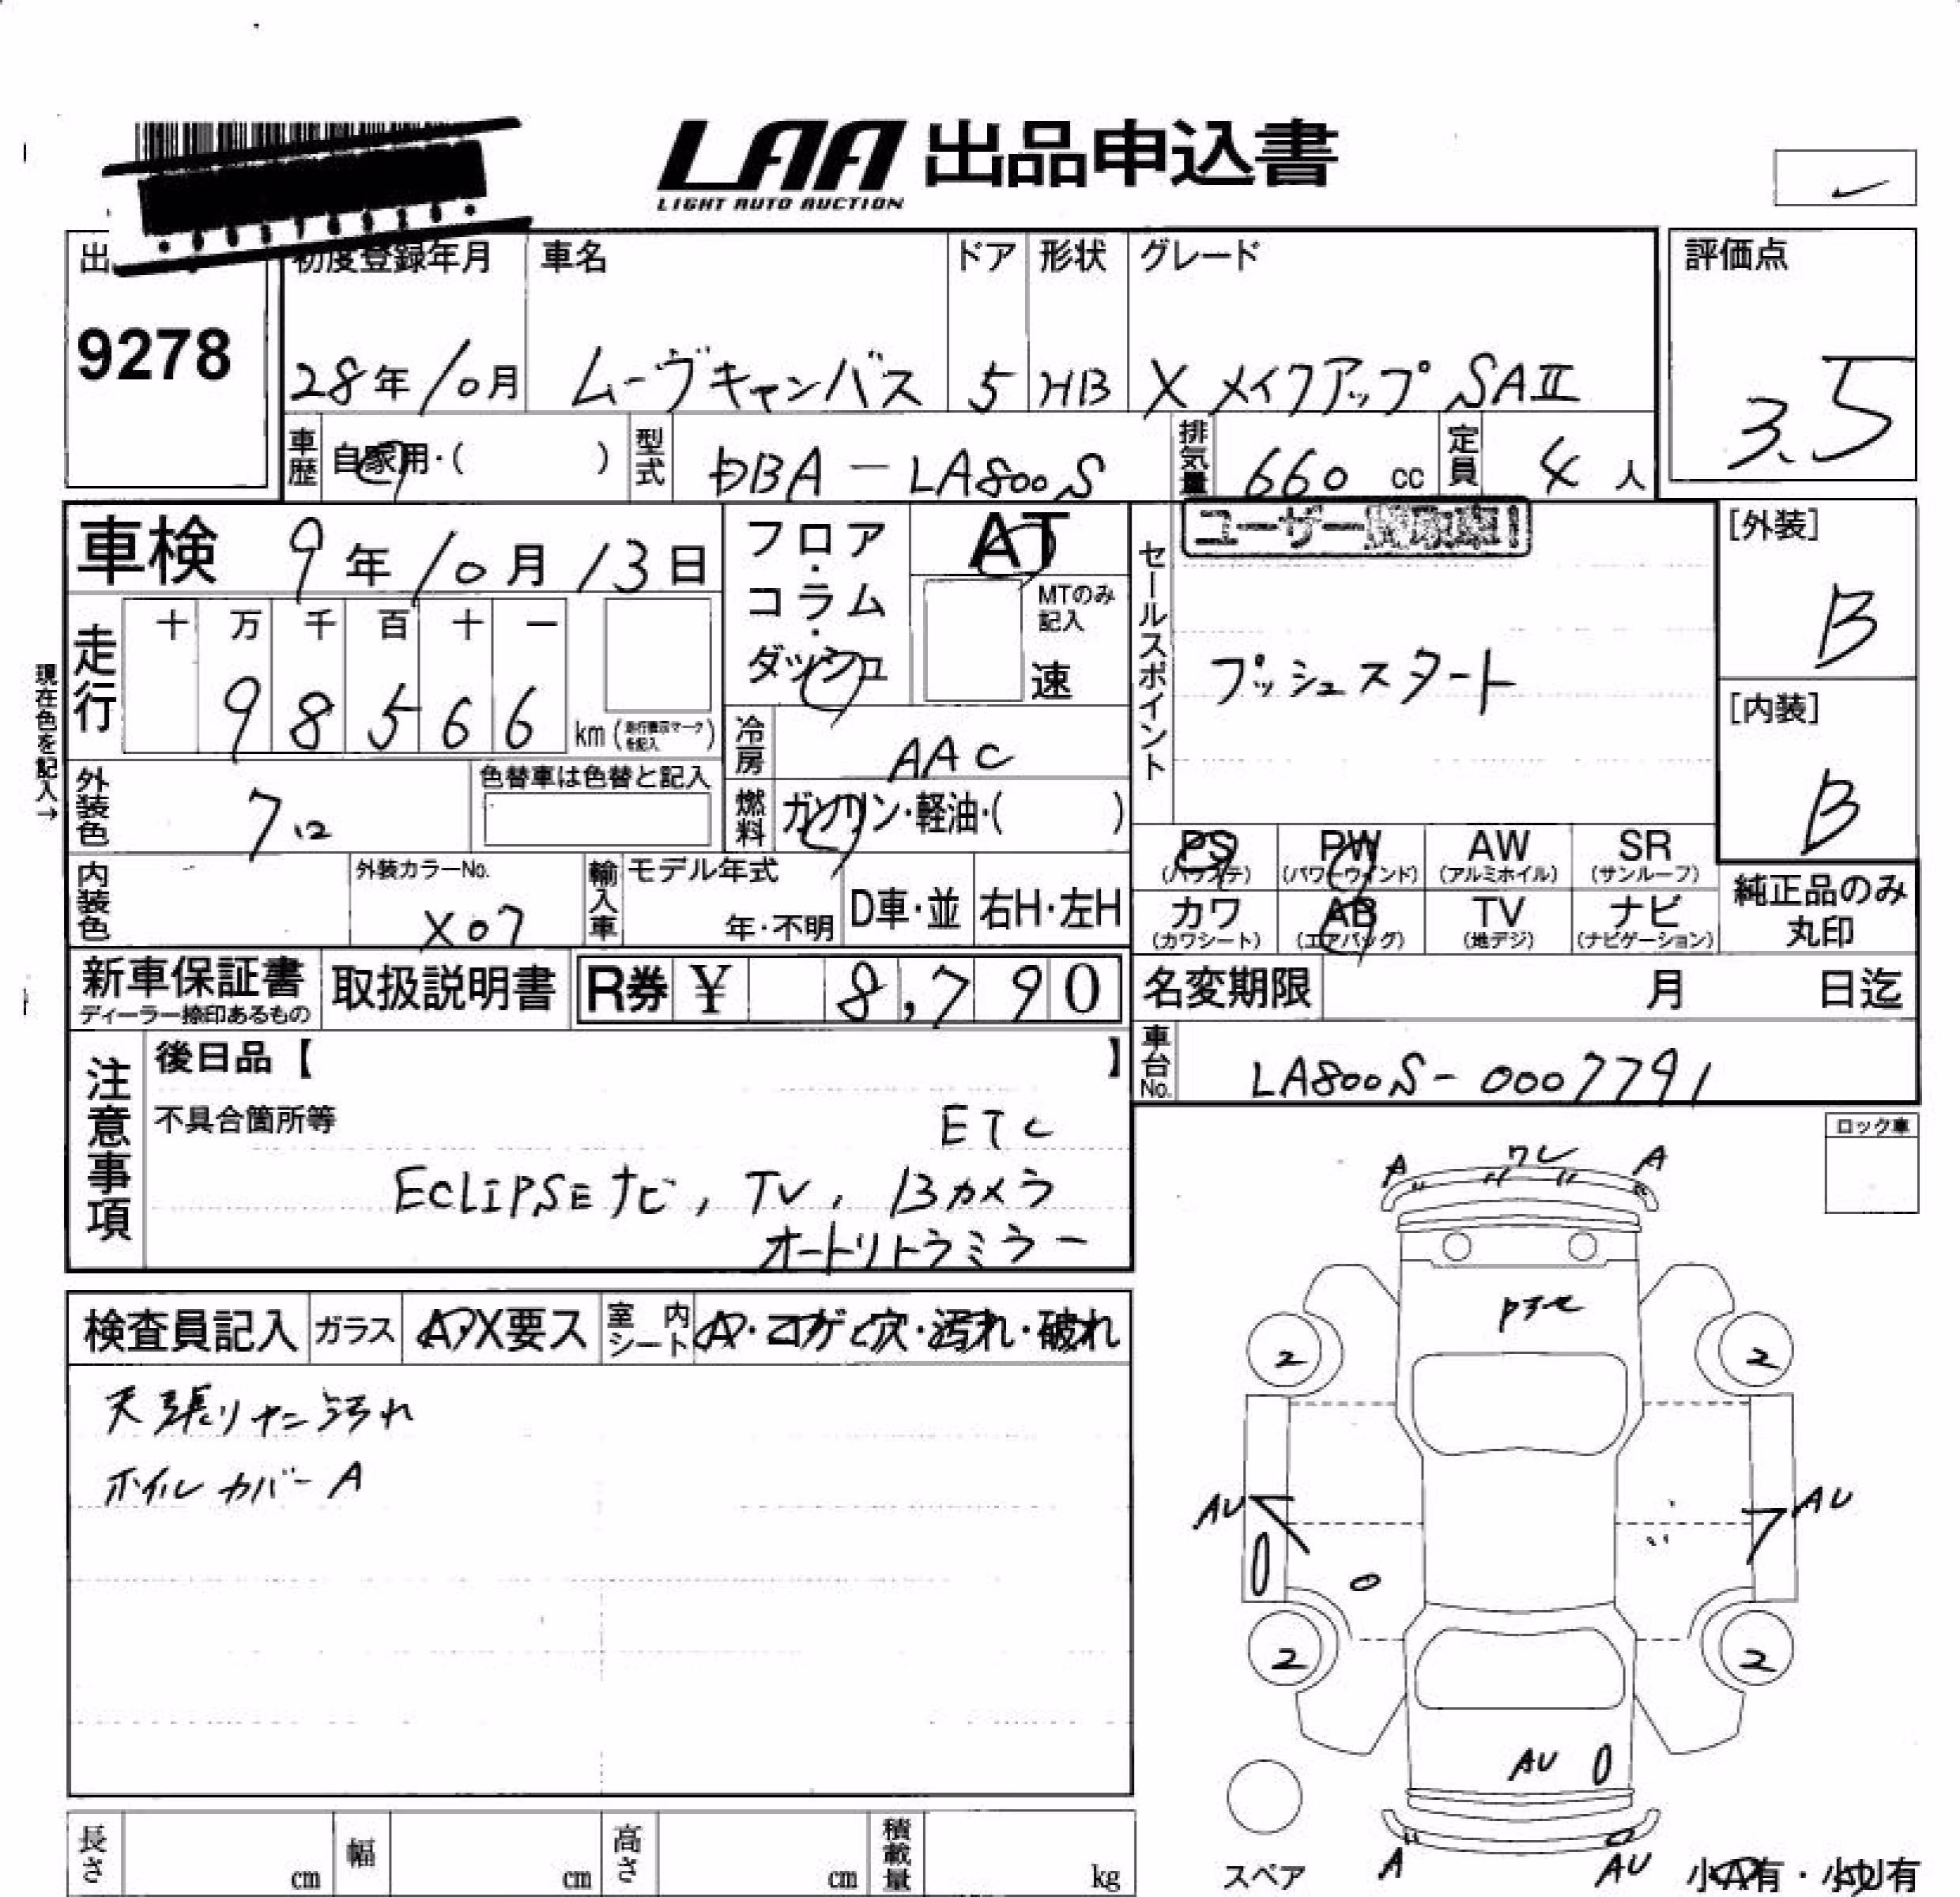 LAA 出品申込書
LIGHT AUTO AUCTION
出 初度登録年月 車名 ドア 形状 グレード 評価点
9278 28年10月 ムーヴキャンバス 5 HB X メイクアップ SAⅡ 3.5
車歴 自家用・( ) 型式 DBA-LA800S 排気量 660 cc 定員 4 人
車検 9年10月13日 フロア・コラム・ダッシュ AT
MTのみ記入 速
セールスポイント ユーザー
プッシュスタート
[外装] B
[内装] B
現在色を記入→
走行 十 万 千 百 十 一
9 8 5 6 6 km
冷房 AAC
外装色 色替車は色替と記入 燃料 ガソリン・軽油・( )
PS (パワステ) PW (パワーウインド) AW (アルミホイル) SR (サンルーフ)
カワ (カワシート) AB (エアバッグ) TV (地デジ) ナビ (ナビゲーション)
純正品のみ丸印
内装色 外装カラーNo. X07 輸入車 モデル年式 年・不明 D車・並 右H・左H
新車保証書 取扱説明書 R券 ¥ 8,790 名変期限 月 日迄
ディーラー捺印あるもの
車台No. LA800S-0007791
注意事項 後日品【 】
不具合箇所等 ETC
ECLIPSEナビ, TV, Bカメラ
オートリトラミラー
ロック車
検査員記入 ガラス A・X要ス 室内シート A・コゲ・穴・汚れ・破れ
天張りヤニ汚れ
ホイルカバーA
A ワレ A
2 2
AU AU
2 2
AU
A AU
スペア 小A有・小U有
長さ cm 幅 cm 高さ cm 積載量 kg